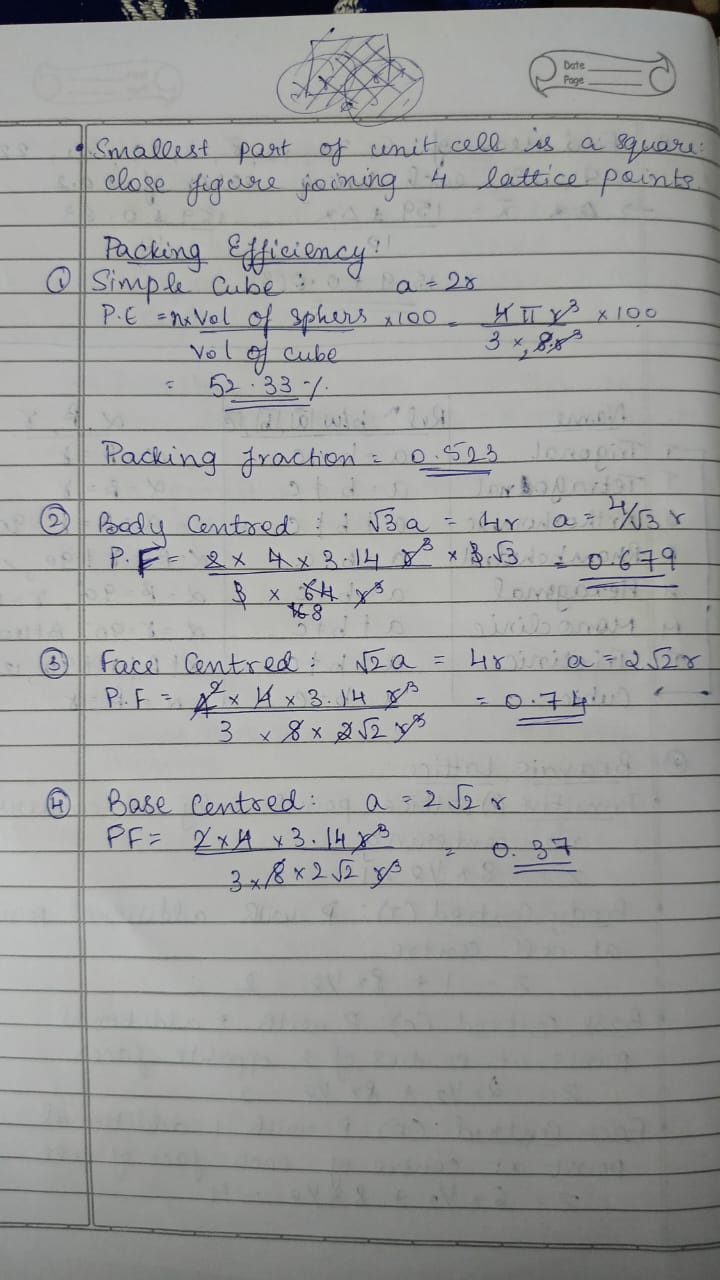 Date
Page
• Smallest part of unit cell is a square:
close figure joining 4 lattice points
Packing Efficiency:
① Simple Cube : a = 2r
P.E = n×Vol of sphers ×100 = 4πr³ × 100
Vol of cube 3 × 8r³
= 52.33 %
Packing fraction = 0.523
② Body Centred : : √3a = 4r a = 4/√3 r
P.F = 2 × 4 × 3.14 r³ × 3√3 = 0.679
3 × 64 r³
16 8
③ Face Centred : √2a = 4r a = 2√2r
P.F = 4 2 × 4 × 3.14 r³ = 0.74
3 × 8 × 2√2 r³
④ Base Centred : a = 2√2 r
PF = 2×4 ×3.14 r³ = 0.37
3×8×2√2 r³